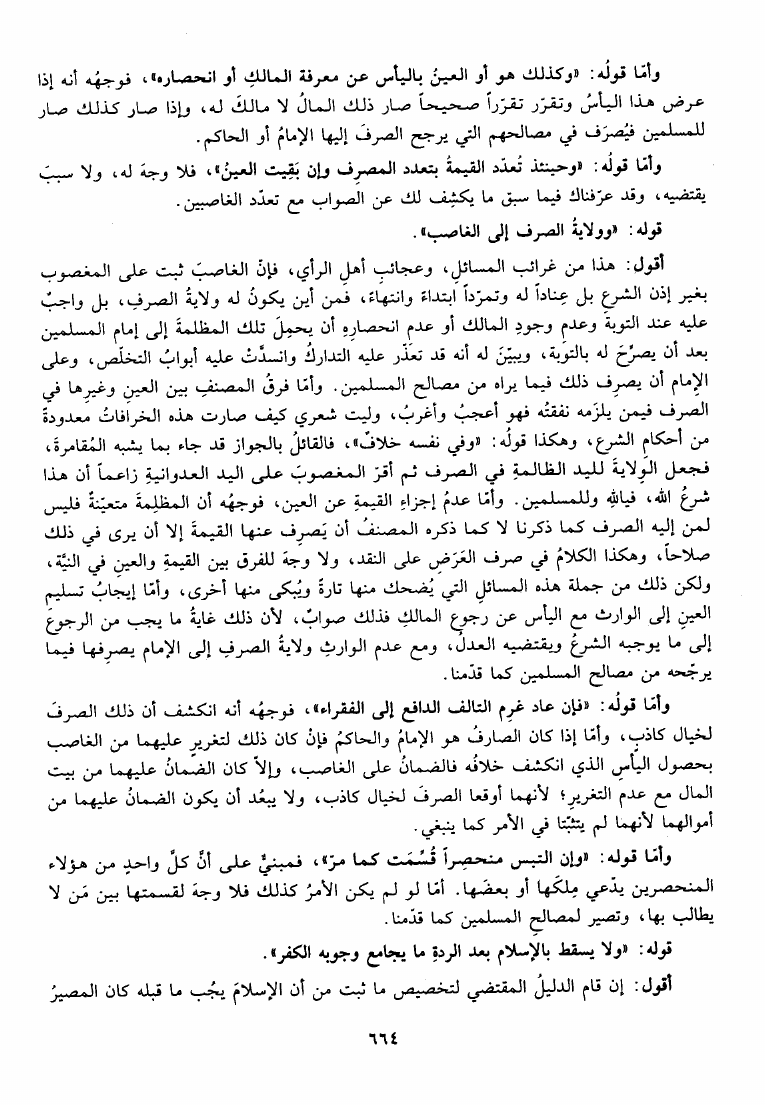 وأمّا قولُه: «وكذلك هو أو العينُ باليأس عن معرفة المالكِ أو انحصاره»، فوجهُه أنه إذا
عرض هذا اليأسُ وتقرّر تقرّراً صحيحاً صار ذلك المالُ لا مالكَ له، وإذا صار كذلك صار
للمسلمين فيُصرَف في مصالحهم التي يرجح الصرفَ إليها الإمامُ أو الحاكم.
وأمّا قولُه: «وحينئذ تُعدّد القيمةُ بتعدد المصرِف وإن بَقِيت العينُ»، فلا وجهَ له، ولا سببَ
يقتضيه، وقد عرّفناك فيما سبق ما يكشِف لك عن الصواب مع تعدّد الغاصبين.
قوله: «وولايةُ الصرف إلى الغاصب».
أقول: هذا من غرائب المسائلِ، وعجائبِ أهلِ الرأي، فإنّ الغاصبَ ثبت على المغصوب
بغير إذن الشرع بل عِناداً له وتمرّداً ابتداءً وانتهاءً، فمن أين يكونُ له ولايةُ الصرفِ، بل واجبٌ
عليه عند التوبةِ وعدمِ وجودِ المالك أو عدم انحصارِهِ أن يحمِلَ تلك المظلمةَ إلى إمام المسلمين
بعد أن يصرِّحَ له بالتوبة، ويبيّنَ له أنه قد تعذّر عليه التداركُ وانسدَّتْ عليه أبوابُ التخلّص، وعلى
الإمام أن يصرِف ذلك فيما يراه من مصالح المسلمين. وأمّا فرقُ المصنفِ بين العينِ وغيرِها في
الصرف فيمن يلزَمه نفقتُه فهو أعجبُ وأغربُ، وليت شعري كيف صارت هذه الخرافاتُ معدودةً
من أحكامِ الشرع، وهكذا قولُه: «وفي نفسه خلافٌ»، فالقائلُ بالجواز قد جاء بما يشبه المُقامرةَ،
فجعل الوِلايةَ لليد الظالمةِ في الصرف ثم أقرّ المغصوبَ على اليد العدوانيةِ زاعماً أن هذا
شرعُ الله، فيالله وللمسلمين. وأمّا عدمُ إجزاءِ القيمةِ عن العين، فوجهُه أن المظلِمةَ متعيّنةٌ فليس
لمن إليه الصرف كما ذكرنا لا كما ذكره المصنفُ أن يَصرِف عنها القيمةَ إلا أن يرى في ذلك
صلاحاً، وهكذا الكلامُ في صرف العَرَضِ على النقد، ولا وجهَ للفرق بين القيمةِ والعينِ في النيَّة،
ولكن ذلك من جملة هذه المسائلِ التي يُضحك منها تارةً ويُبكى منها أخرى، وأمّا إيجابُ تسليمِ
العينِ إلى الوارث مع اليأس عن رجوع المالكِ فذلك صوابٌ، لأن ذلك غايةُ ما يجب من الرجوعَ
إلى ما يوجبه الشرعُ ويقتضيه العدلُ، ومع عدم الوارثِ ولايةُ الصرفِ إلى الإمام يصرِفها فيما
يرجّحه من مصالح المسلمين كما قدّمنا.
وأمّا قولُه: «فإن عاد غرِم التالف الدافع إلى الفقراء»، فوجهُه أنه انكشف أن ذلك الصرفَ
لخيال كاذبٍ، وأمّا إذا كان الصارفُ هو الإمامُ والحاكمُ فإنْ كان ذلك لتغريرٍ عليهما من الغاصب
بحصول اليأسِ الذي انكشف خلافُه فالضمانُ على الغاصب، وإلاّ كان الضمانُ عليهما من بيت
المال مع عدم التغريرِ؛ لأنهما أوقعا الصرفَ لخيال كاذب، ولا يبعُد أن يكون الضمانُ عليهما من
أموالهما لأنهما لم يتثبّتا في الأمر كما ينبغي.
وأمّا قوله: «وإن التبس منحصِراً قُسِّمَت كما مرّ»، فمبنيٌّ على أنَّ كلَّ واحدٍ من هؤلاء
المنحصرين يدّعي مِلكَها أو بعضَها. أمّا لو لم يكن الأمرُ كذلك فلا وجهَ لقسمتها بين مَن لا
يطالب بها، وتصير لمصالحِ المسلمين كما قدّمنا.
قوله: «ولا يسقط بالإسلام بعد الردةِ ما يجامع وجوبه الكفر».
أقول: إن قام الدليلُ المقتضي لتخصيص ما ثبت من أن الإسلامَ يجُب ما قبله كان المصيرُ
٦٦٤